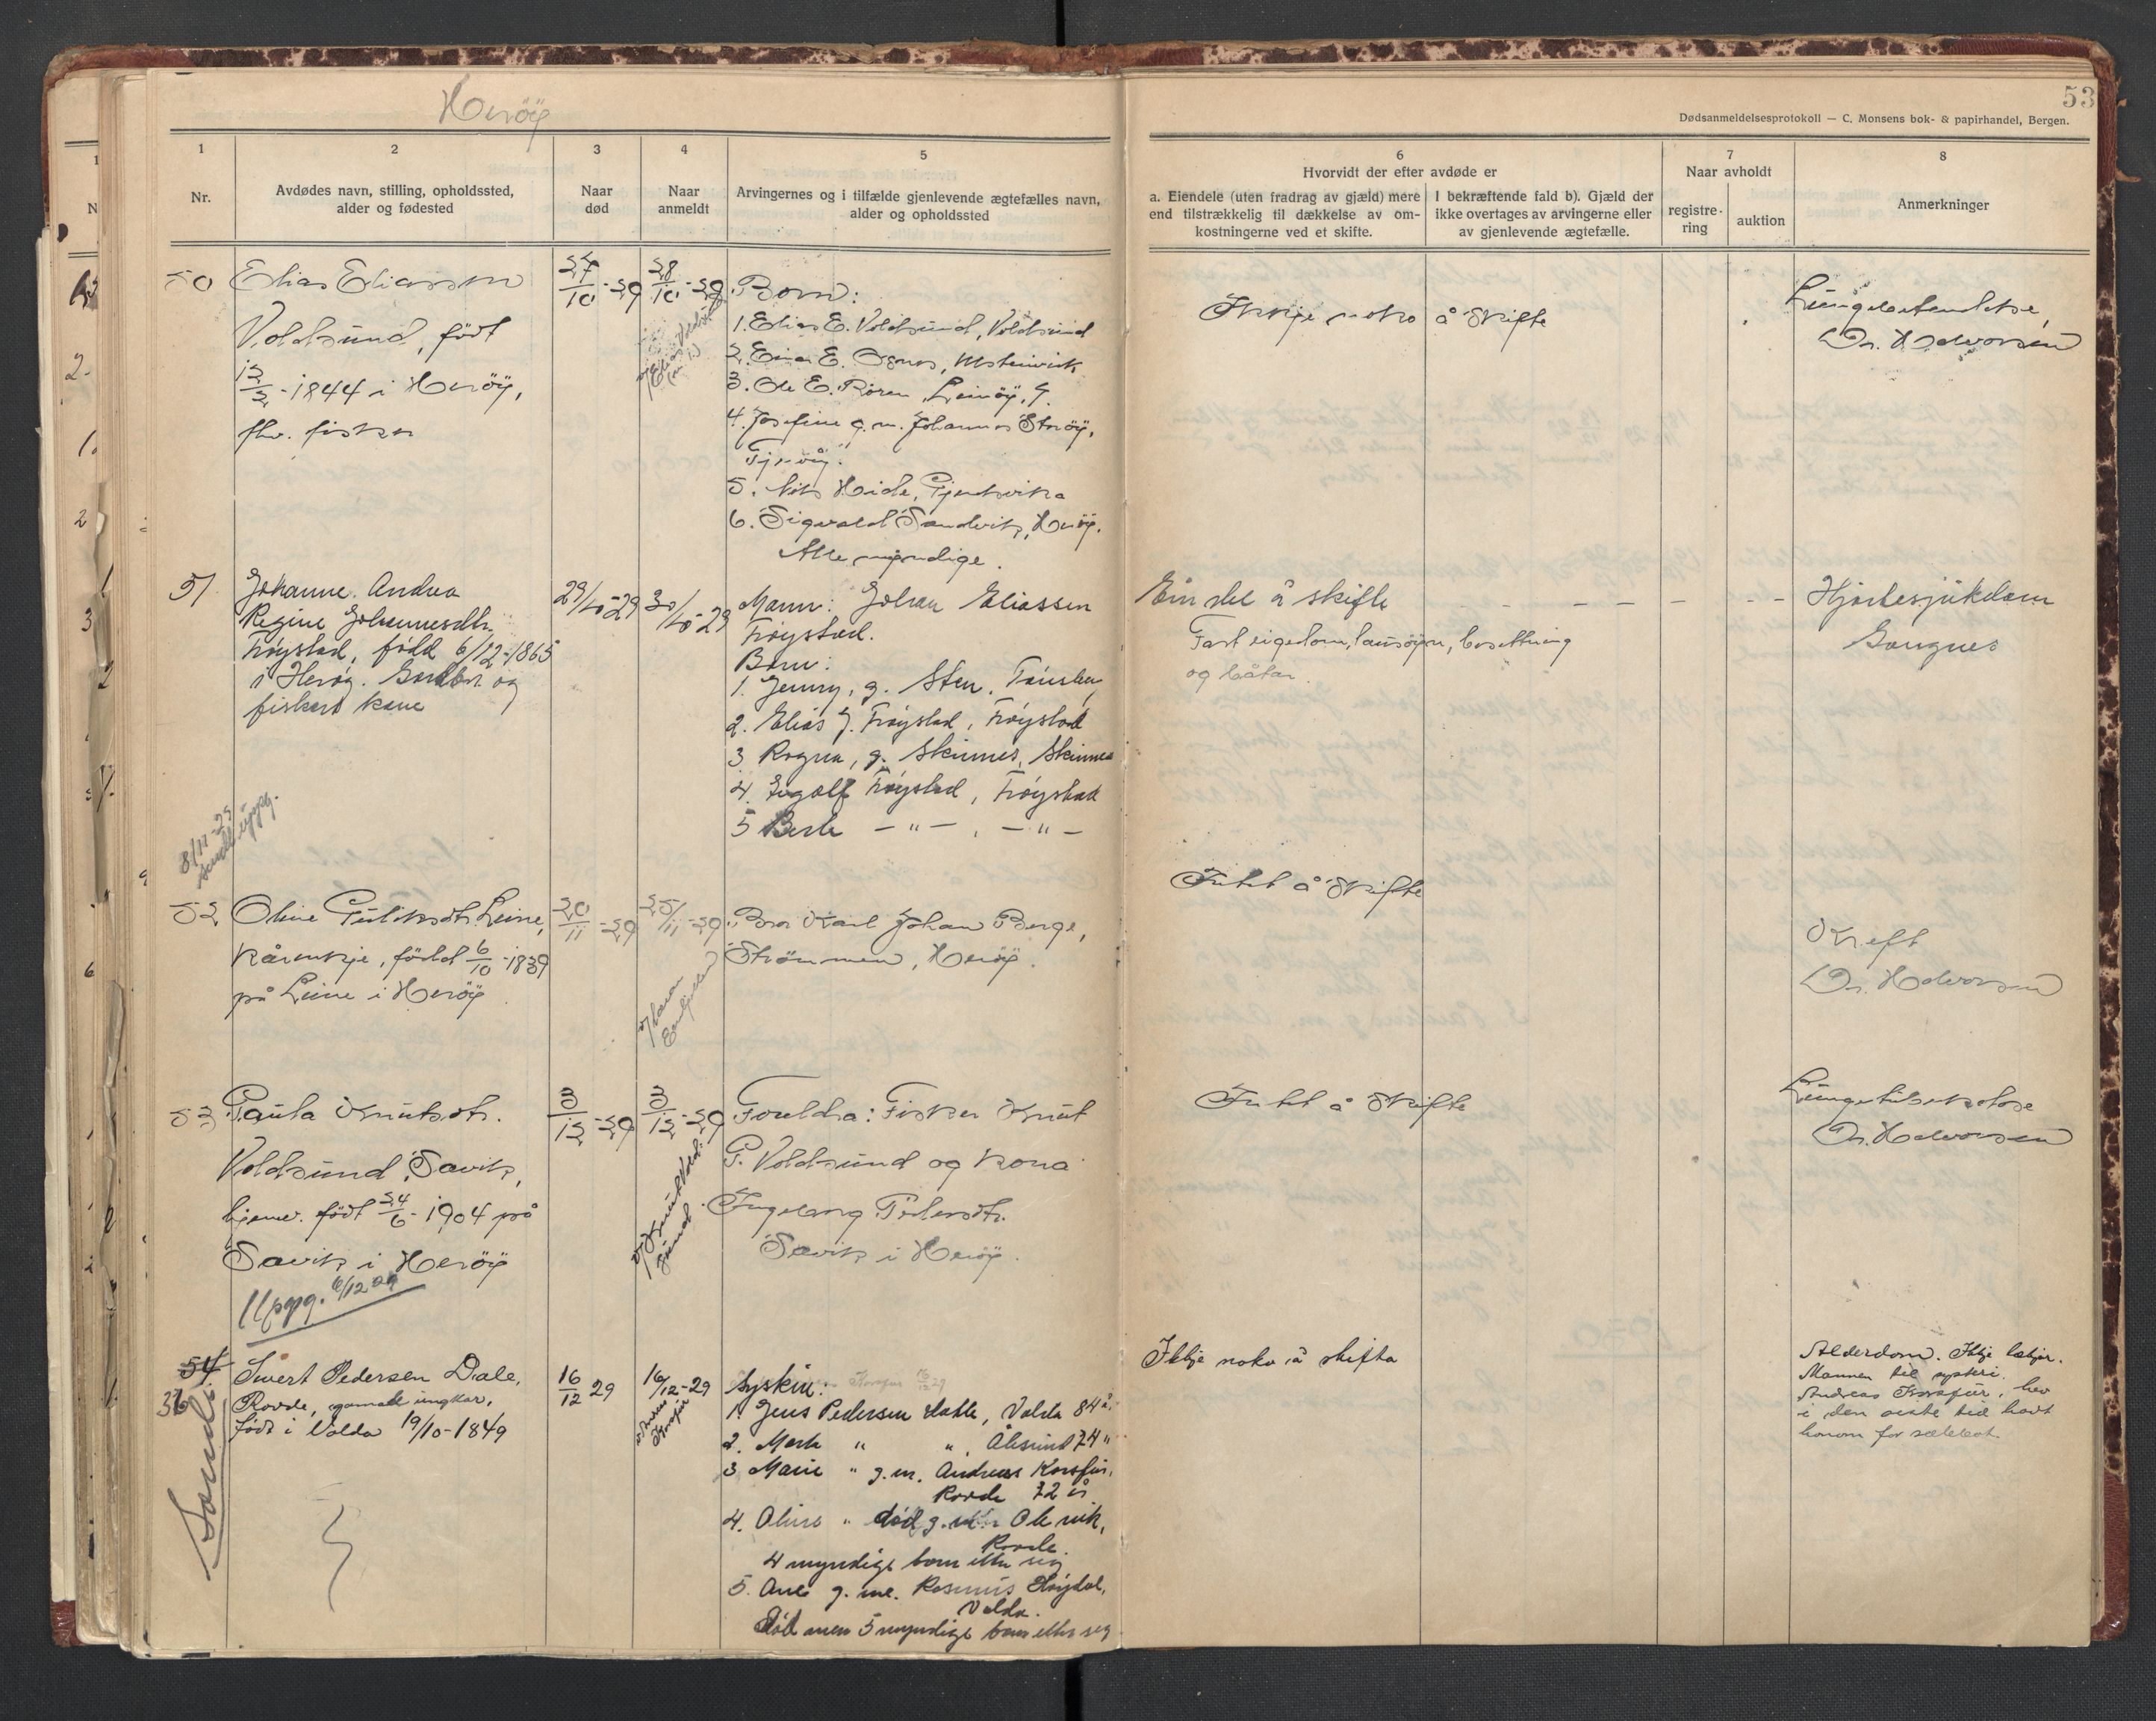 Herøy
53
Dødsanmeldelsesprotokoll — C. Monsens bok- & papirhandel, Bergen.
1
2
3
4
5
6
7
8
Nr.
Avdødes navn, stilling, opholdssted,
alder og fødested
Naar
død
Naar
anmeldt
Arvingernes og i tilfælde gjenlevende ægtefælles navn,
alder og opholdssted
Hvorvidt der efter avdøde er
a. Eiendele (uten fradrag av gjæld) mere
end tilstrækkelig til dækkelse av om-
kostningerne ved et skifte.
I bekræftende fald b). Gjæld der
ikke overtages av arvingerne eller
av gjenlevende ægtefælle.
Naar avholdt
registre-
ring
auktion
Anmerkninger
50
Elias Eliassen
Voldsund, født
12/2-1844 i Herøy,
fhv. fisker
27/10-29
28/10-29
Born:
1. Elias E. Voldsund, Voldsund
2. Einar E. Ulsteinvik
3. Ole E. Røren, Leinøy, H.
4. Josefine g. m. Johannes Storøy,
Tjørvåg.
5. Nils Heide, Gjerdsvika
6. Sigvald Sandvik, Herøy.
Alle myndige.
Ikkje noko å skifte
Lungebetendelse,
Dr. Halvorsen
51
Johanne Andrea
Regine Johannesdtr.
Frøystad, född 6/12-1865
i Herøy. Gardbr. og
fiskers kone
29/10-29
30/10-29
Mann: Johan Eliassen
Frøystad.
Born:
1. Jenny, g. Sten, Tønsberg
2. Elias J. Frøystad, Frøystad
3 Ragna, g. Skinnes, Skinnes
4. Ingolf Frøystad, Frøystad
5 Berte — " — , — " —
Ein del å skifte
Fast eigedom, lausøyre, besettning
og båtar.
Hjartesjukdom
Gangnes
8/11-29
52
Oline Leine,
kårenkje, född 6/10-1839
på Leine i Herøy
20/11-29
25/11-29
Bror Karl Johan Berge,
Strømmen, Herøy.
Intet å skifte
Kreft
Dr. Halvorsen
53
Paula Knutsdtr.
Voldsund, Sævik,
hjemv. født 24/6-1904 på
Sævik i Herøy
Uppg. 6/12 29
3/12-29
3/12-29
v/ Knut Vold-
sund
Foreldra: Fisker Knut
P. Voldsund og kona
Ingeborg Pedersdtr.
Sævik i Herøy.
Intet å skifte
Lungetuberkolose
Dr. Halvorsen
54
36
Sande
Sivert Pedersen Dale,
Rovde, gamal ungkar,
født i Volda 19/10-1849
16/12 29
16/12-29
v/ Andreas
Korsfur
Syskin:
1. Jens Pedersen Hatle, Volda 84 å.
2. Marte " ", Ålesund 74 "
3 Marie " g.m. Andreas Korsfur,
Rovde 72 år
4. Oline " død g. m. Ole
Rovde.
4 myndige born etter seg
5. Ane g. m. Rasmus Høydal,
Volda.
Död men 5 myndige born etter seg
Ikkje noko å skifta
Alderdom. Ikkje lækjar.
Mannen til systeri,
Andreas Korsfur, hev
i den siste tid havt
honom for